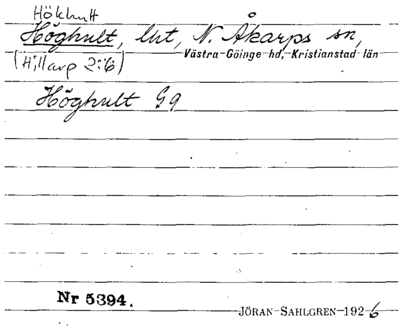 Hökhult
Höghult, lht, N. Åkarps sn,
(Hillarp 2:6) Västra-Göinge hd, Kristianstad län
Höghult Gg
Nr 5394.
JÖRAN SAHLGREN 1926